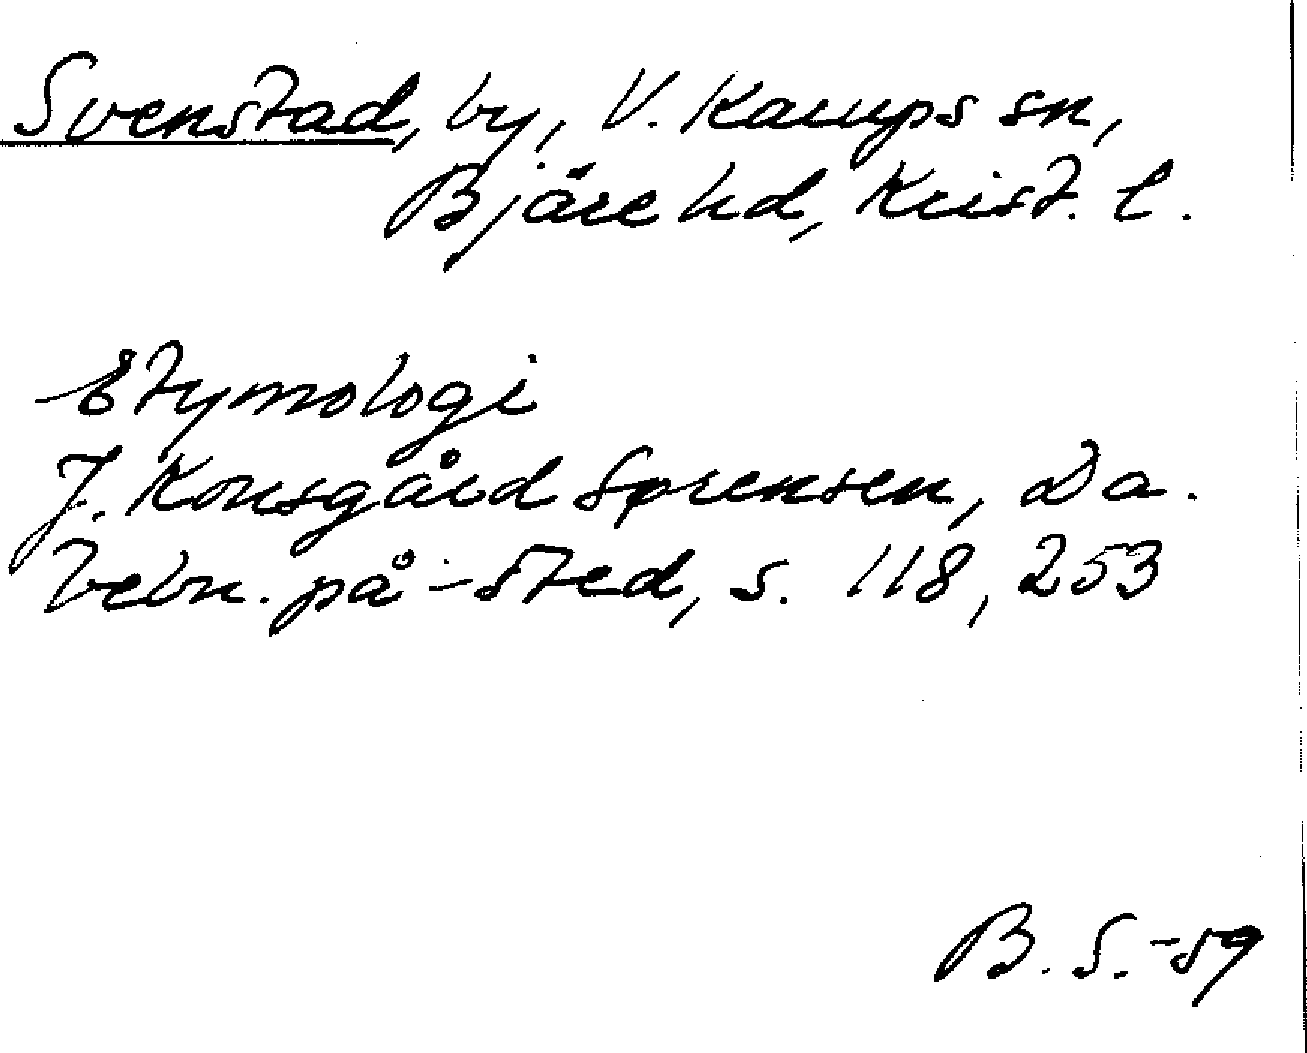 Svenstad, by, V. Karups sn,
Bjäre hd, Krist. l.
Etymologi
J. Kousgård Sørensen, Da.
bebn. på -sted, s. 118, 253
B. S. -59